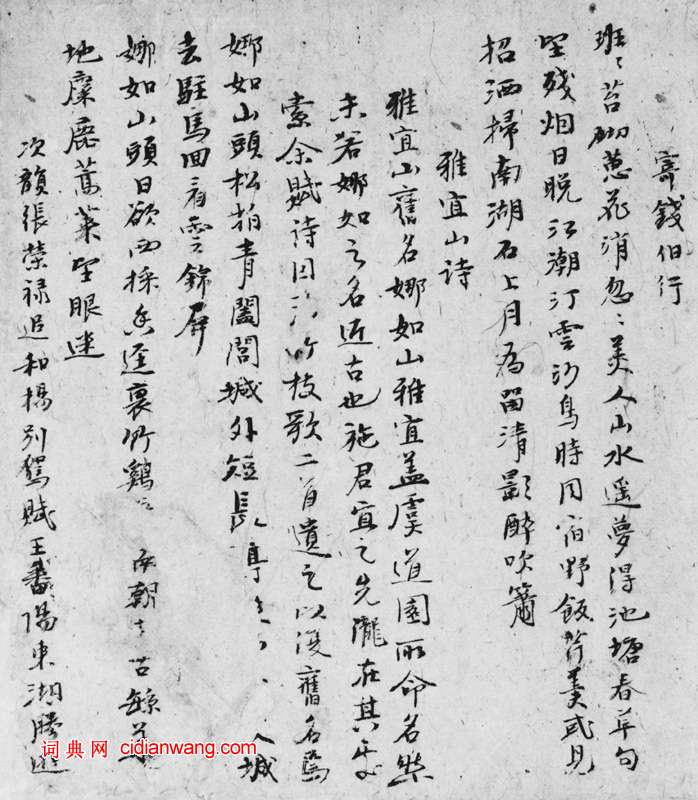 寄錢伯行
班〻苔砌蔥花消忽〻美人山水遥夢得池塘春草句
坐殘烟日晚江潮汀雲沙鳥時同宿野飯芹羹或見
招洒掃南湖石上月為留清影醉吹簫
雅宜山詩
雅宜山舊名娜如山雅宜盖虞道園所命名然
未若娜如之名近古也施君宜之先隴在其處
索余賦詩因竹枝歌二首遺之以復舊名焉
娜如山頭松柏青闔閭城外短長亭入城
去駐馬回看雲錦屏
娜如山頭日欲西採香逕裏竹鷄
地麋鹿蒿萊望眼迷
次韻張榮禄追和楊別駕賦王番陽東湖勝遊
词典网 cidianwang.com